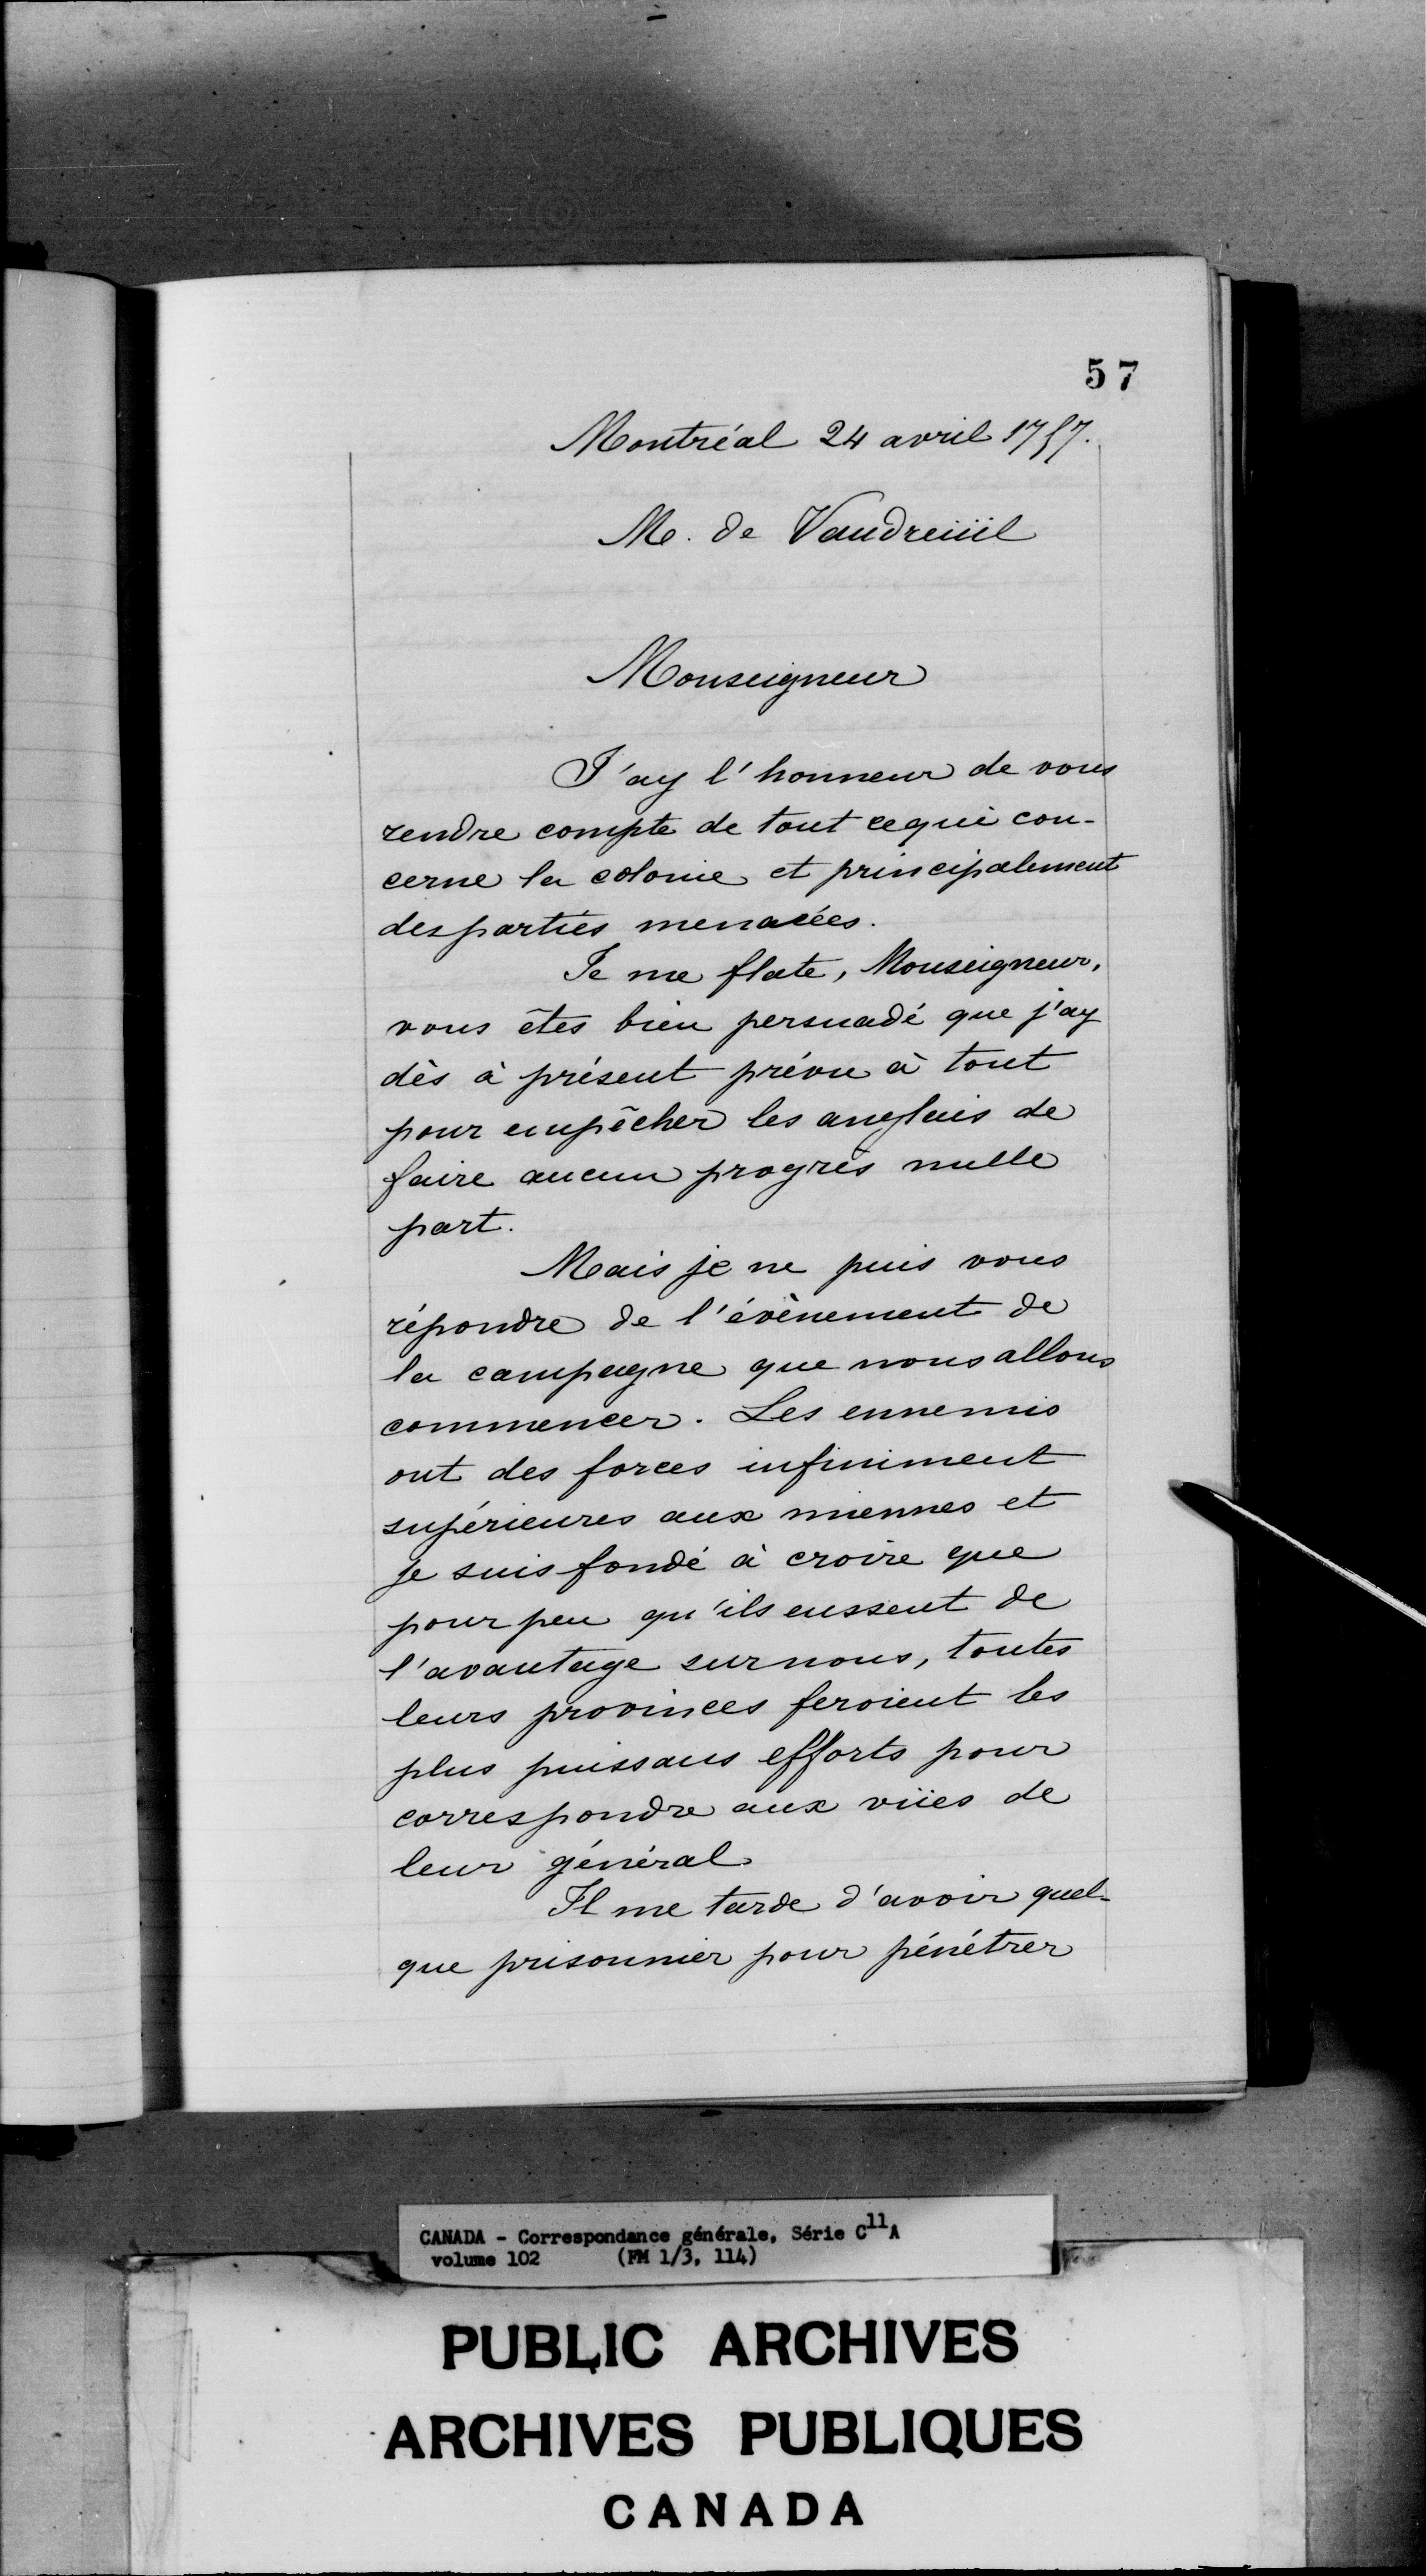 57
Montréal 24 avril 1757.
M. de Vaudreüil
Monseigneur
J'ay l'honneur de vous
rendre compte de tout cequi con-
cerne la colonie et principalement
des parties menacées.
Je me flate, Monseigneur,
vous êtes bien persuadé que j'ay
dès à présent prévu à tout
pour empêcher les anglais de
faire aucun progrès nulle
part.
Mais je ne puis vous
répondre de l'évènement de
la campagne que nous allons
commencer. Les ennemis
ont des forces infiniment
supérieures aux miennes et
je suis fondé à croire que
pour peu qu'ils eussent de
l'avantage sur nous, toutes
leurs provinces feroient les
plus puissans efforts pour
correspondre aux vües de
leur général
Il me tarde d'avoir quel-
que prisonnier pour pénétrer
CANADA - Correspondance générale, Série C11A
volume 102 (FM 1/3, 114)
PUBLIC ARCHIVES
ARCHIVES PUBLIQUES
CANADA